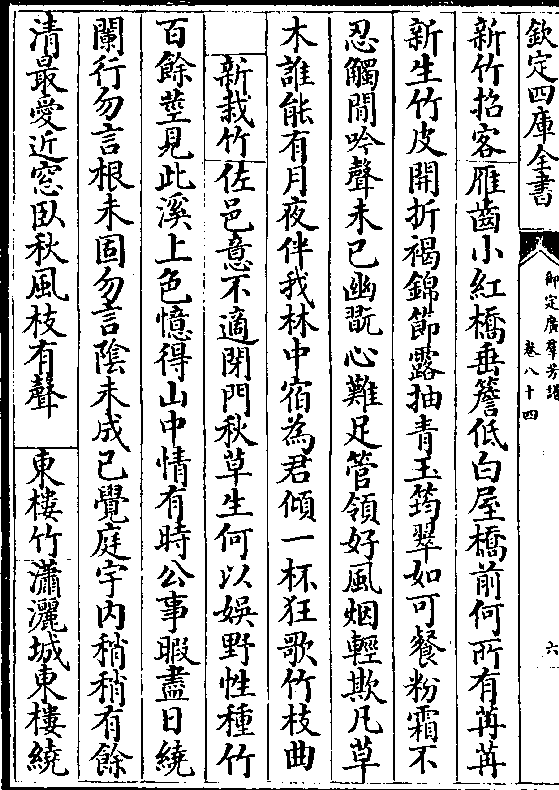 欽定四庫全書
御定廣羣芳譜
卷八十四
六
新竹招客雁齒小紅橋垂簷低白屋橋前何所有苒苒
新生竹皮開折褐錦節露抽青玉筠翠如可餐粉霜不
忍觸閒吟聲未已幽翫心難足管領好風烟輕欺凡草
木誰能有月夜伴我林中宿為君傾一杯狂歌竹枝曲
新栽竹佐邑意不適閉門秋草生何以娛野性種竹
百餘莖見此溪上色憶得山中情有時公事暇盡日繞
闌行勿言根未固勿言陰未成已覺庭宇内稍稍有餘
清最愛近窓臥秋風枝有聲 東樓竹瀟灑城東樓繞